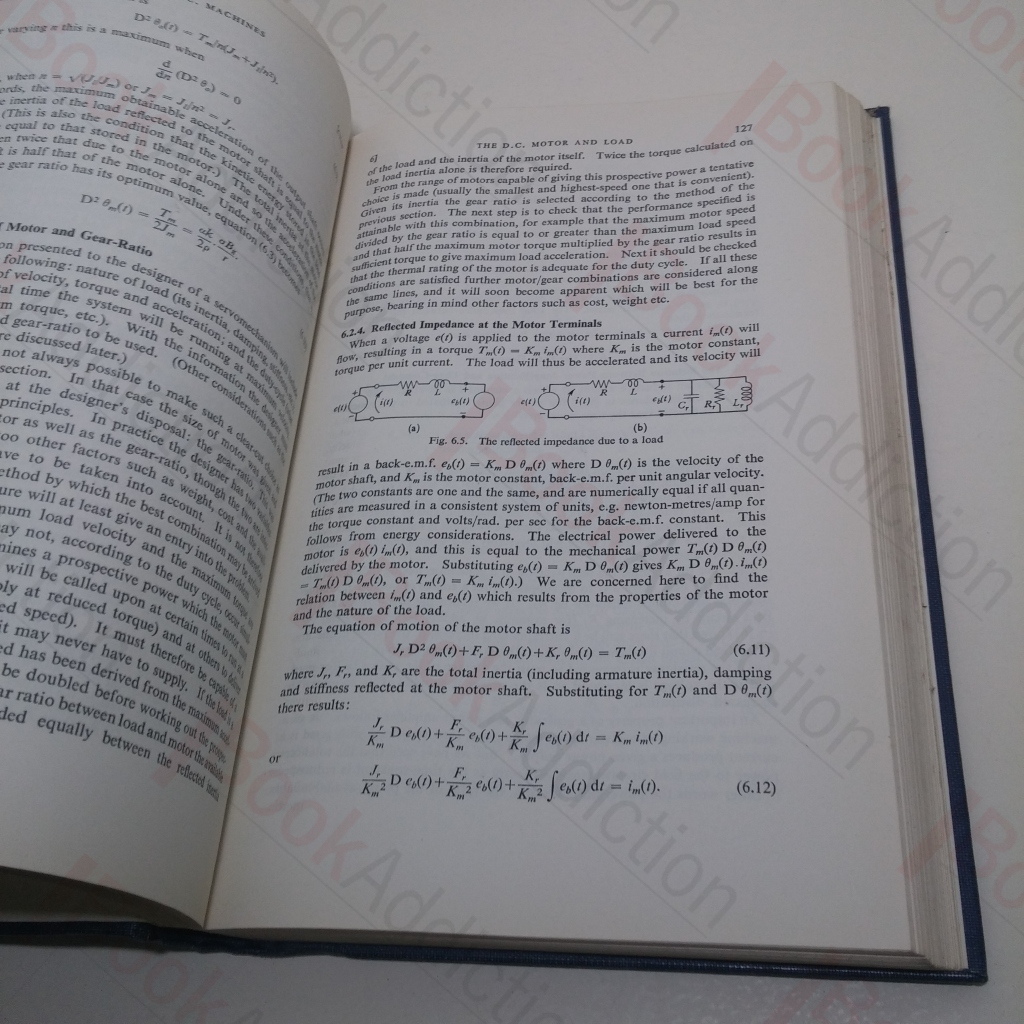 C. MACHINES
D² θₒ(t) = Tₘ/n(Jₘ+Jₗ/n²).
r varying n this is a maximum when
d/dn (D² θₒ) = 0
ords, the maximum obtainable acceleration of the output
e inertia of the load reflected to the motor shaft is equal
(This is also the condition that the kinetic energy
equal to that stored in the motor.) The total
en twice that due to the motor alone and so the
t is half that of the motor alone. Under these
e gear ratio has its optimum value, equation (6.3)
f Motor and Gear-Ratio
on presented to the designer of a servomechanism
following: nature of load (its inertia, damping
of velocity, torque and acceleration: and the duty
al time the system will be running at maximum
m torque, etc.). With the information the designer
d gear-ratio to be used. (Other considerations
re discussed later.)
not always possible to make such a clear-cut
section. In that case the size of motor was
at the designer's disposal: the gear-ratio.
principles. In practice the designer has two
tor as well as the gear-ratio, though the two are
too other factors such as weight, cost and the
ave to be taken into account. It is not
ethod by which the best combination may be
ure will at least give an entry into the problem.
num load velocity and the maximum torque
ay not, according to the duty cycle, occur
mines a prospective power which the motor
will be called upon at certain times to run at a
ply at reduced torque) and at others to deliver
ed speed). It must therefore be capable of a
it may never have to supply. If the load is a
ed has been derived from the maximum
be doubled before working out the
ar ratio between load and motor the available
ded equally between the reflected inertia
6]
THE D.C. MOTOR AND LOAD
127
of the load and the inertia of the motor itself. Twice the torque calculated on
the load inertia alone is therefore required.
From the range of motors capable of giving this prospective power a tentative
choice is made (usually the smallest and highest-speed one that is convenient).
Given its inertia the gear ratio is selected according to the method of the
previous section. The next step is to check that the performance specified is
attainable with this combination, for example that the maximum motor speed
divided by the gear ratio is equal to or greater than the maximum load speed
and that half the maximum motor torque multiplied by the gear ratio results in
sufficient torque to give maximum load acceleration. Next it should be checked
that the thermal rating of the motor is adequate for the duty cycle. If all these
conditions are satisfied further motor/gear combinations are considered along
the same lines, and it will soon become apparent which will be best for the
purpose, bearing in mind other factors such as cost, weight etc.
6.2.4. Reflected Impedance at the Motor Terminals
When a voltage e(t) is applied to the motor terminals a current iₘ(t) will
flow, resulting in a torque Tₘ(t) = Kₘ iₘ(t) where Kₘ is the motor constant,
torque per unit current. The load will thus be accelerated and its velocity will
e(t) i(t) R L e_b(t) e(t) i(t) R L e_b(t) Cᵣ Rᵣ Lᵣ
(a) (b)
Fig. 6.5. The reflected impedance due to a load
result in a back-e.m.f. e_b(t) = Kₘ D θₘ(t) where D θₘ(t) is the velocity of the
motor shaft, and Kₘ is the motor constant, back-e.m.f. per unit angular velocity.
(The two constants are one and the same, and are numerically equal if all quan-
tities are measured in a consistent system of units, e.g. newton-metres/amp for
the torque constant and volts/rad. per sec for the back-e.m.f. constant. This
follows from energy considerations. The electrical power delivered to the
motor is e_b(t) iₘ(t), and this is equal to the mechanical power Tₘ(t) D θₘ(t)
delivered by the motor. Substituting e_b(t) = Kₘ D θₘ(t) gives Kₘ D θₘ(t).iₘ(t)
= Tₘ(t) D θₘ(t), or Tₘ(t) = Kₘ iₘ(t).) We are concerned here to find the
relation between iₘ(t) and e_b(t) which results from the properties of the motor
and the nature of the load.
The equation of motion of the motor shaft is
Jᵣ D² θₘ(t)+Fᵣ D θₘ(t)+Kᵣ θₘ(t) = Tₘ(t) (6.11)
where Jᵣ, Fᵣ, and Kᵣ are the total inertia (including armature inertia), damping
and stiffness reflected at the motor shaft. Substituting for Tₘ(t) and D θₘ(t)
there results:
Jᵣ/Kₘ D e_b(t)+Fᵣ/Kₘ e_b(t)+Kᵣ/Kₘ ∫e_b(t) dt = Kₘ iₘ(t)
or
Jᵣ/Kₘ² D e_b(t)+Fᵣ/Kₘ² e_b(t)+Kᵣ/Kₘ² ∫e_b(t) dt = iₘ(t). (6.12)
BookAddiction